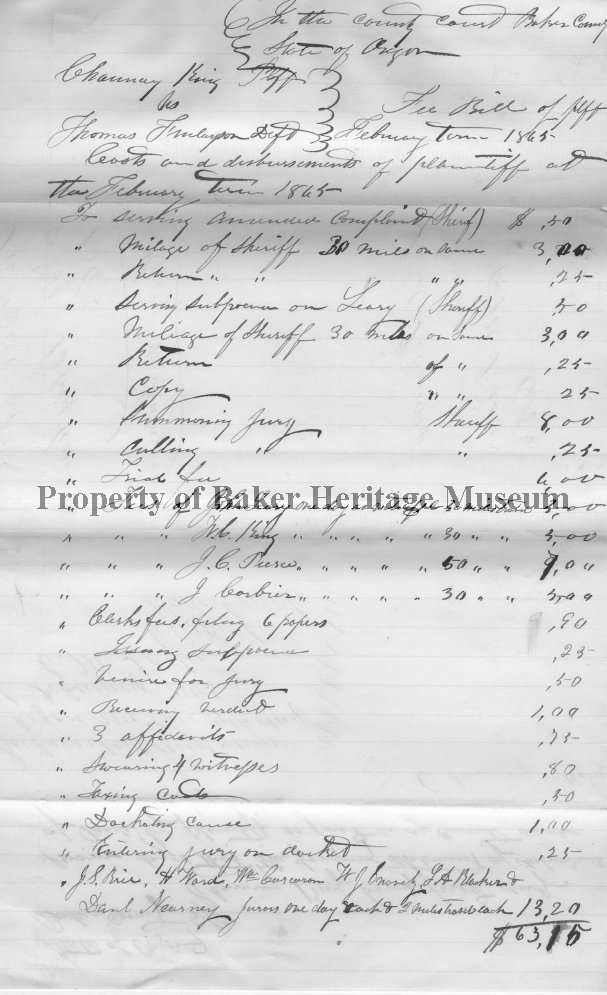 In the county court Baker County
State of Oregon
Chauncy King Plff
vs Fee Bill of plff
Thomas Deft February term 1865
Costs and disbursements of plaintiff at
the February term 1865
To serving amended complaint (Shirf) $ ,50
" Milage of Sheriff 30 miles on same 3,00
" Return " " " " ,25
" Serving subpoena on Leary (Sheriff) 50
" Miliage of Sheriff 30 miles on same 3,00
" Return of " ,25
" Copy " " 25
" Summoning jury Sheriff 8,00
" Calling " " ,25
" Trial fee 6,00
Property of Baker Heritage Museum
" " " W.C. King " " " " " 30 " " 5,00
" " " J.C. Pierce " " " " " 50 " " 7,00
" " " J Corbier " " " " " 30 " " 5,00
" Clerks fees, filing 6 papers ,90
" Issuing subpoena ,25
" Venire for jury ,50
" Receiving verdict 1,00
" 3 affidavits ,75
" Swearing 4 witnesses ,80
" Taxing costs ,50
" Docketing cause 1,00
" Entering jury on docket ,25
" J.S. Rice, H Ward, Wm Corcoron W J L H Blacker &
Danl Nearney jurors one day each & 2 miles travl each 13,20
$ 63,15